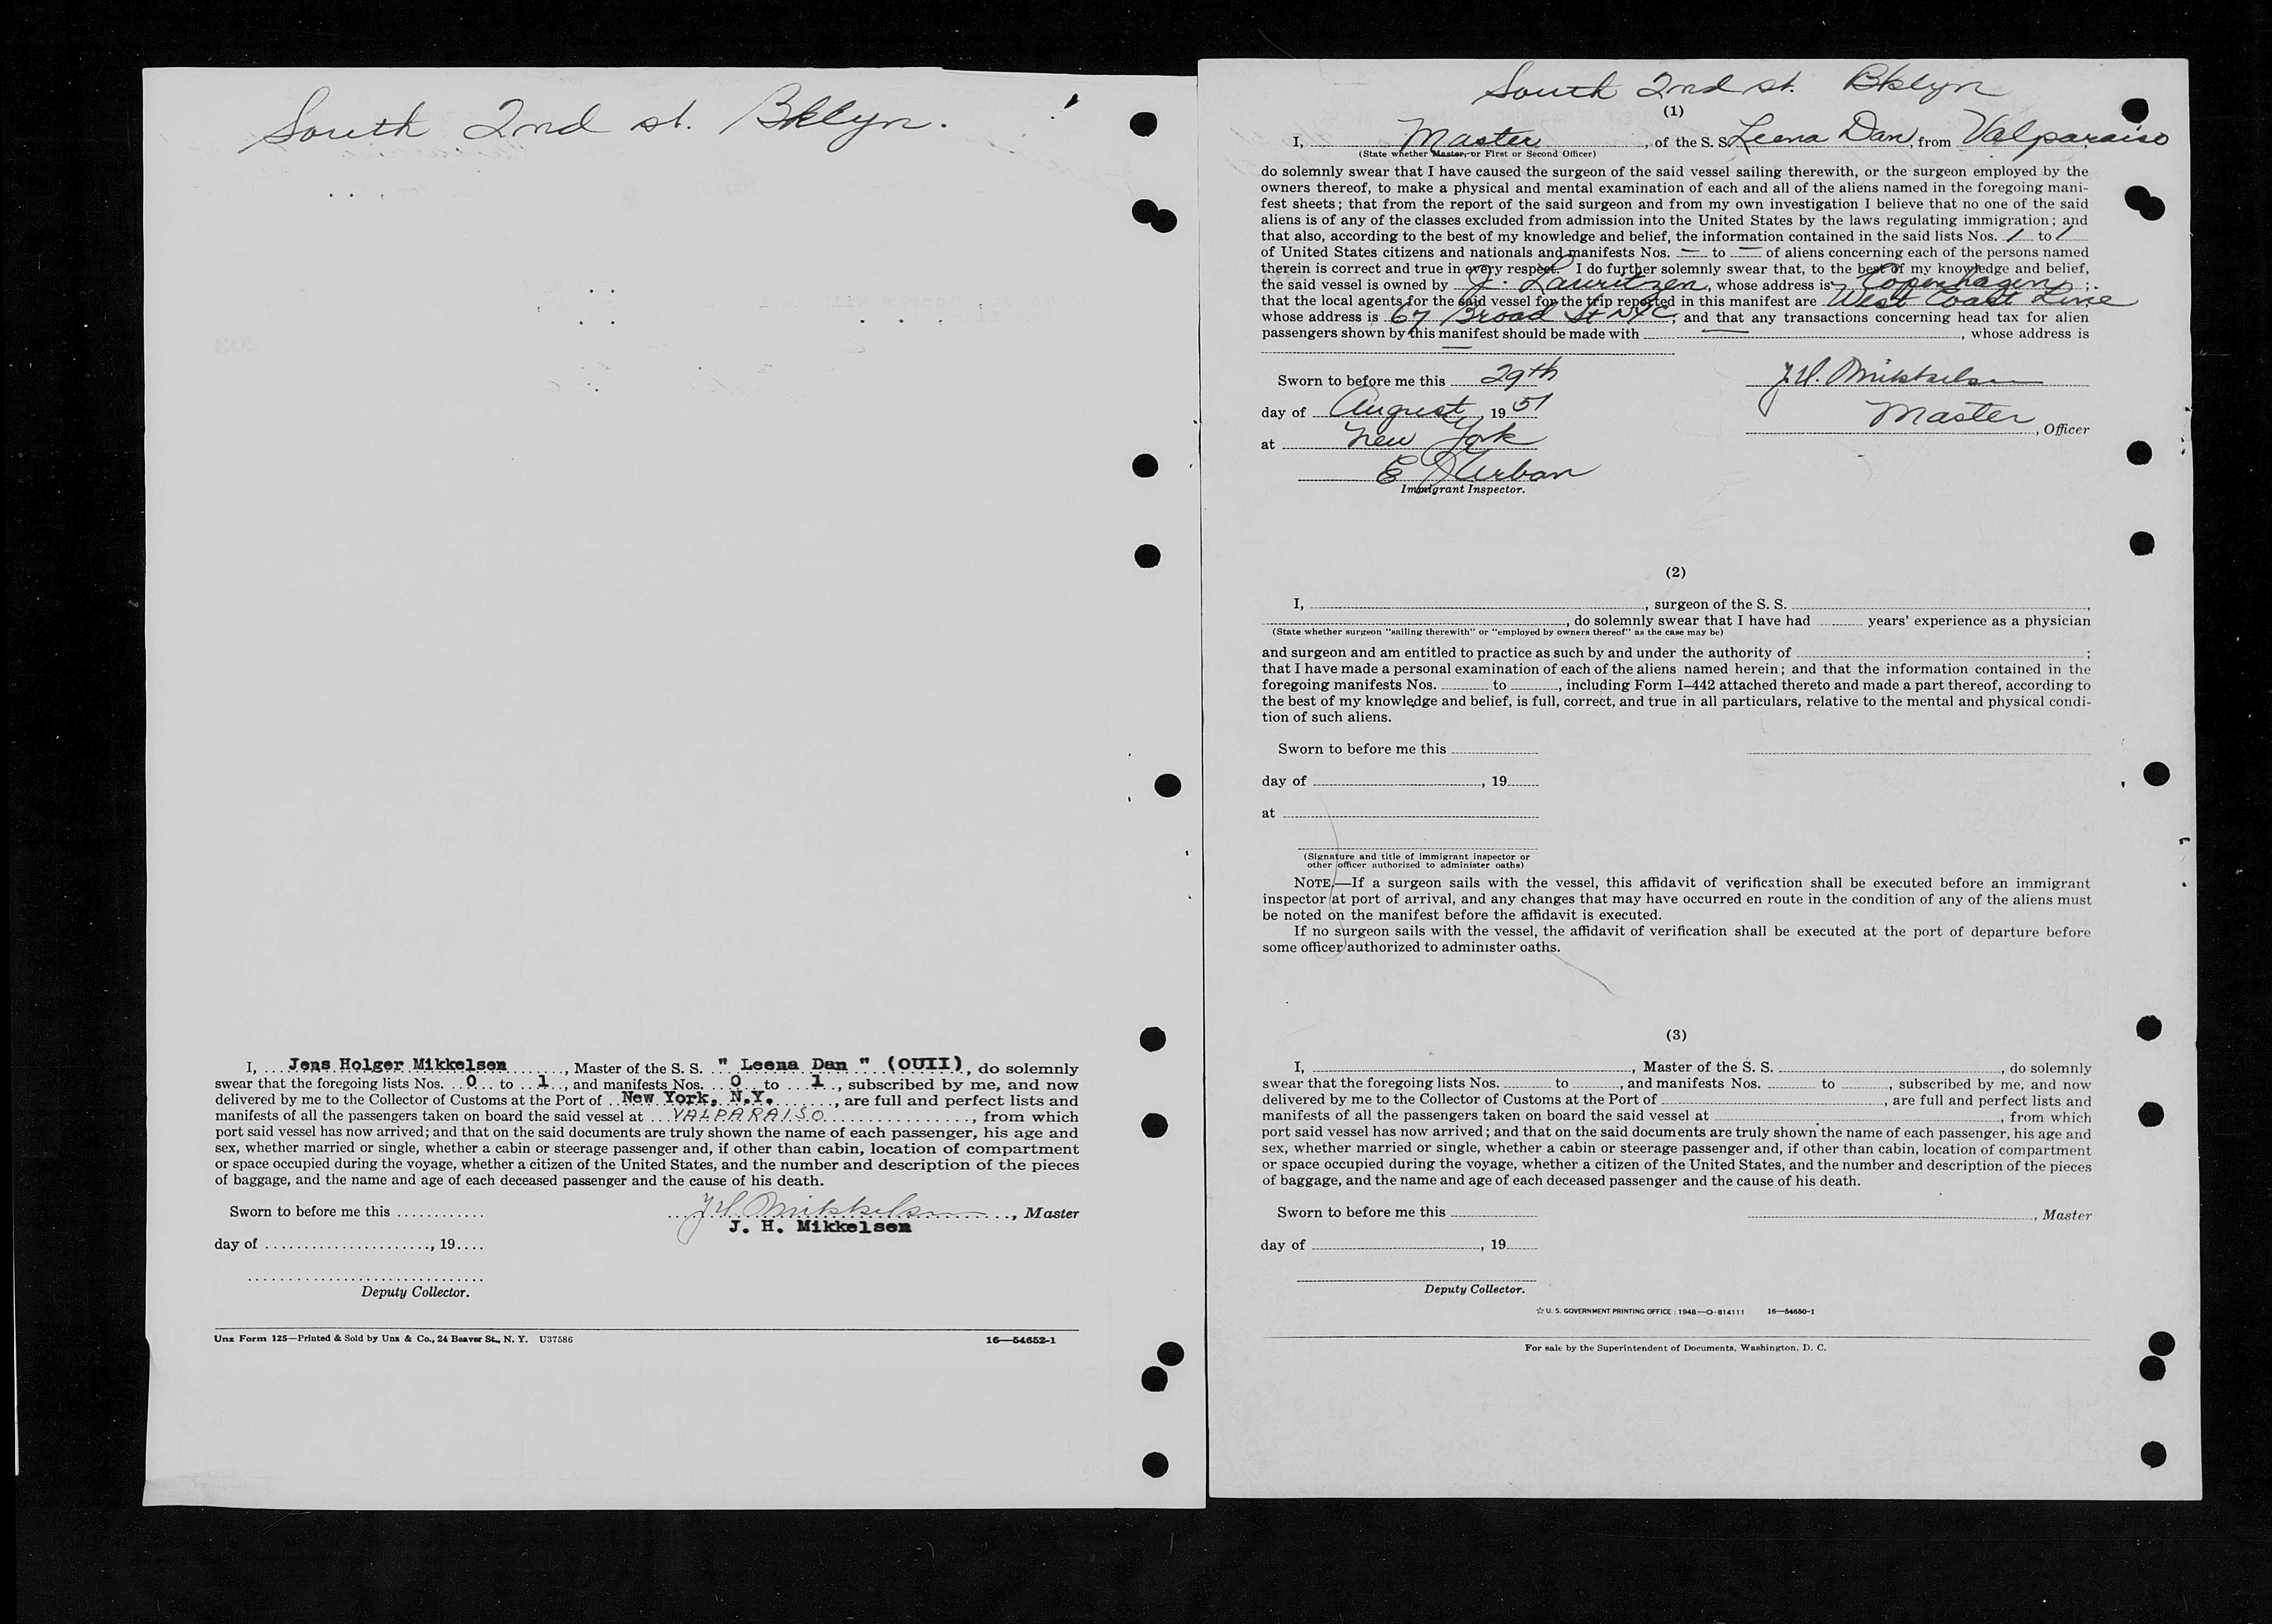 South 2nd st. Bklyn.
I, Jens Holger Mikkelsen, Master of the S. S. " Leena Dan " (OUII), do solemnly
swear that the foregoing lists Nos. 0 to 1, and manifests Nos. 0 to 1, subscribed by me, and now
delivered by me to the Collector of Customs at the Port of New York, N.Y., are full and perfect lists and
manifests of all the passengers taken on board the said vessel at VALPARAISO, from which
port said vessel has now arrived; and that on the said documents are truly shown the name of each passenger, his age and
sex, whether married or single, whether a cabin or steerage passenger and, if other than cabin, location of compartment
or space occupied during the voyage, whether a citizen of the United States, and the number and description of the pieces
of baggage, and the name and age of each deceased passenger and the cause of his death.
Sworn to before me this
J H Mikkelsen, Master
J. H. Mikkelsen
day of , 19
Deputy Collector.
Unz Form 125—Printed & Sold by Unz & Co., 24 Beaver St., N. Y. U37586 16—54652-1
South 2nd st. Bklyn
(1)
I, Master, of the S. S. Leena Dan, from Valparaiso
(State whether Master, or First or Second Officer)
do solemnly swear that I have caused the surgeon of the said vessel sailing therewith, or the surgeon employed by the
owners thereof, to make a physical and mental examination of each and all of the aliens named in the foregoing mani-
fest sheets; that from the report of the said surgeon and from my own investigation I believe that no one of the said
aliens is of any of the classes excluded from admission into the United States by the laws regulating immigration; and
that also, according to the best of my knowledge and belief, the information contained in the said lists Nos. 1 to 1
of United States citizens and nationals and manifests Nos. — to — of aliens concerning each of the persons named
therein is correct and true in every respect. I do further solemnly swear that, to the best of my knowledge and belief,
the said vessel is owned by J. Lauritzen, whose address is Copenhagen;
that the local agents for the said vessel for the trip reported in this manifest are West Coast Line
whose address is 67 Broad St NYC; and that any transactions concerning head tax for alien
passengers shown by this manifest should be made with —, whose address is
—
Sworn to before me this 29th
J. H. Mikkelsen
day of August, 1951
Master, Officer
at New York
E J Urban
Immigrant Inspector.
(2)
I, , surgeon of the S. S. ,
, do solemnly swear that I have had years' experience as a physician
(State whether surgeon "sailing therewith" or "employed by owners thereof" as the case may be)
and surgeon and am entitled to practice as such by and under the authority of ;
that I have made a personal examination of each of the aliens named herein; and that the information contained in the
foregoing manifests Nos. to , including Form I–442 attached thereto and made a part thereof, according to
the best of my knowledge and belief, is full, correct, and true in all particulars, relative to the mental and physical condi-
tion of such aliens.
Sworn to before me this
day of , 19
at
(Signature and title of immigrant inspector or
other officer authorized to administer oaths)
NOTE.—If a surgeon sails with the vessel, this affidavit of verification shall be executed before an immigrant
inspector at port of arrival, and any changes that may have occurred en route in the condition of any of the aliens must
be noted on the manifest before the affidavit is executed.
If no surgeon sails with the vessel, the affidavit of verification shall be executed at the port of departure before
some officer authorized to administer oaths.
(3)
I, , Master of the S. S. , do solemnly
swear that the foregoing lists Nos. to , and manifests Nos. to , subscribed by me, and now
delivered by me to the Collector of Customs at the Port of , are full and perfect lists and
manifests of all the passengers taken on board the said vessel at , from which
port said vessel has now arrived; and that on the said documents are truly shown the name of each passenger, his age and
sex, whether married or single, whether a cabin or steerage passenger and, if other than cabin, location of compartment
or space occupied during the voyage, whether a citizen of the United States, and the number and description of the pieces
of baggage, and the name and age of each deceased passenger and the cause of his death.
Sworn to before me this
, Master
day of , 19
Deputy Collector.
☆ U. S. GOVERNMENT PRINTING OFFICE : 1948—O-814111 16—54650-1
For sale by the Superintendent of Documents, Washington, D. C.